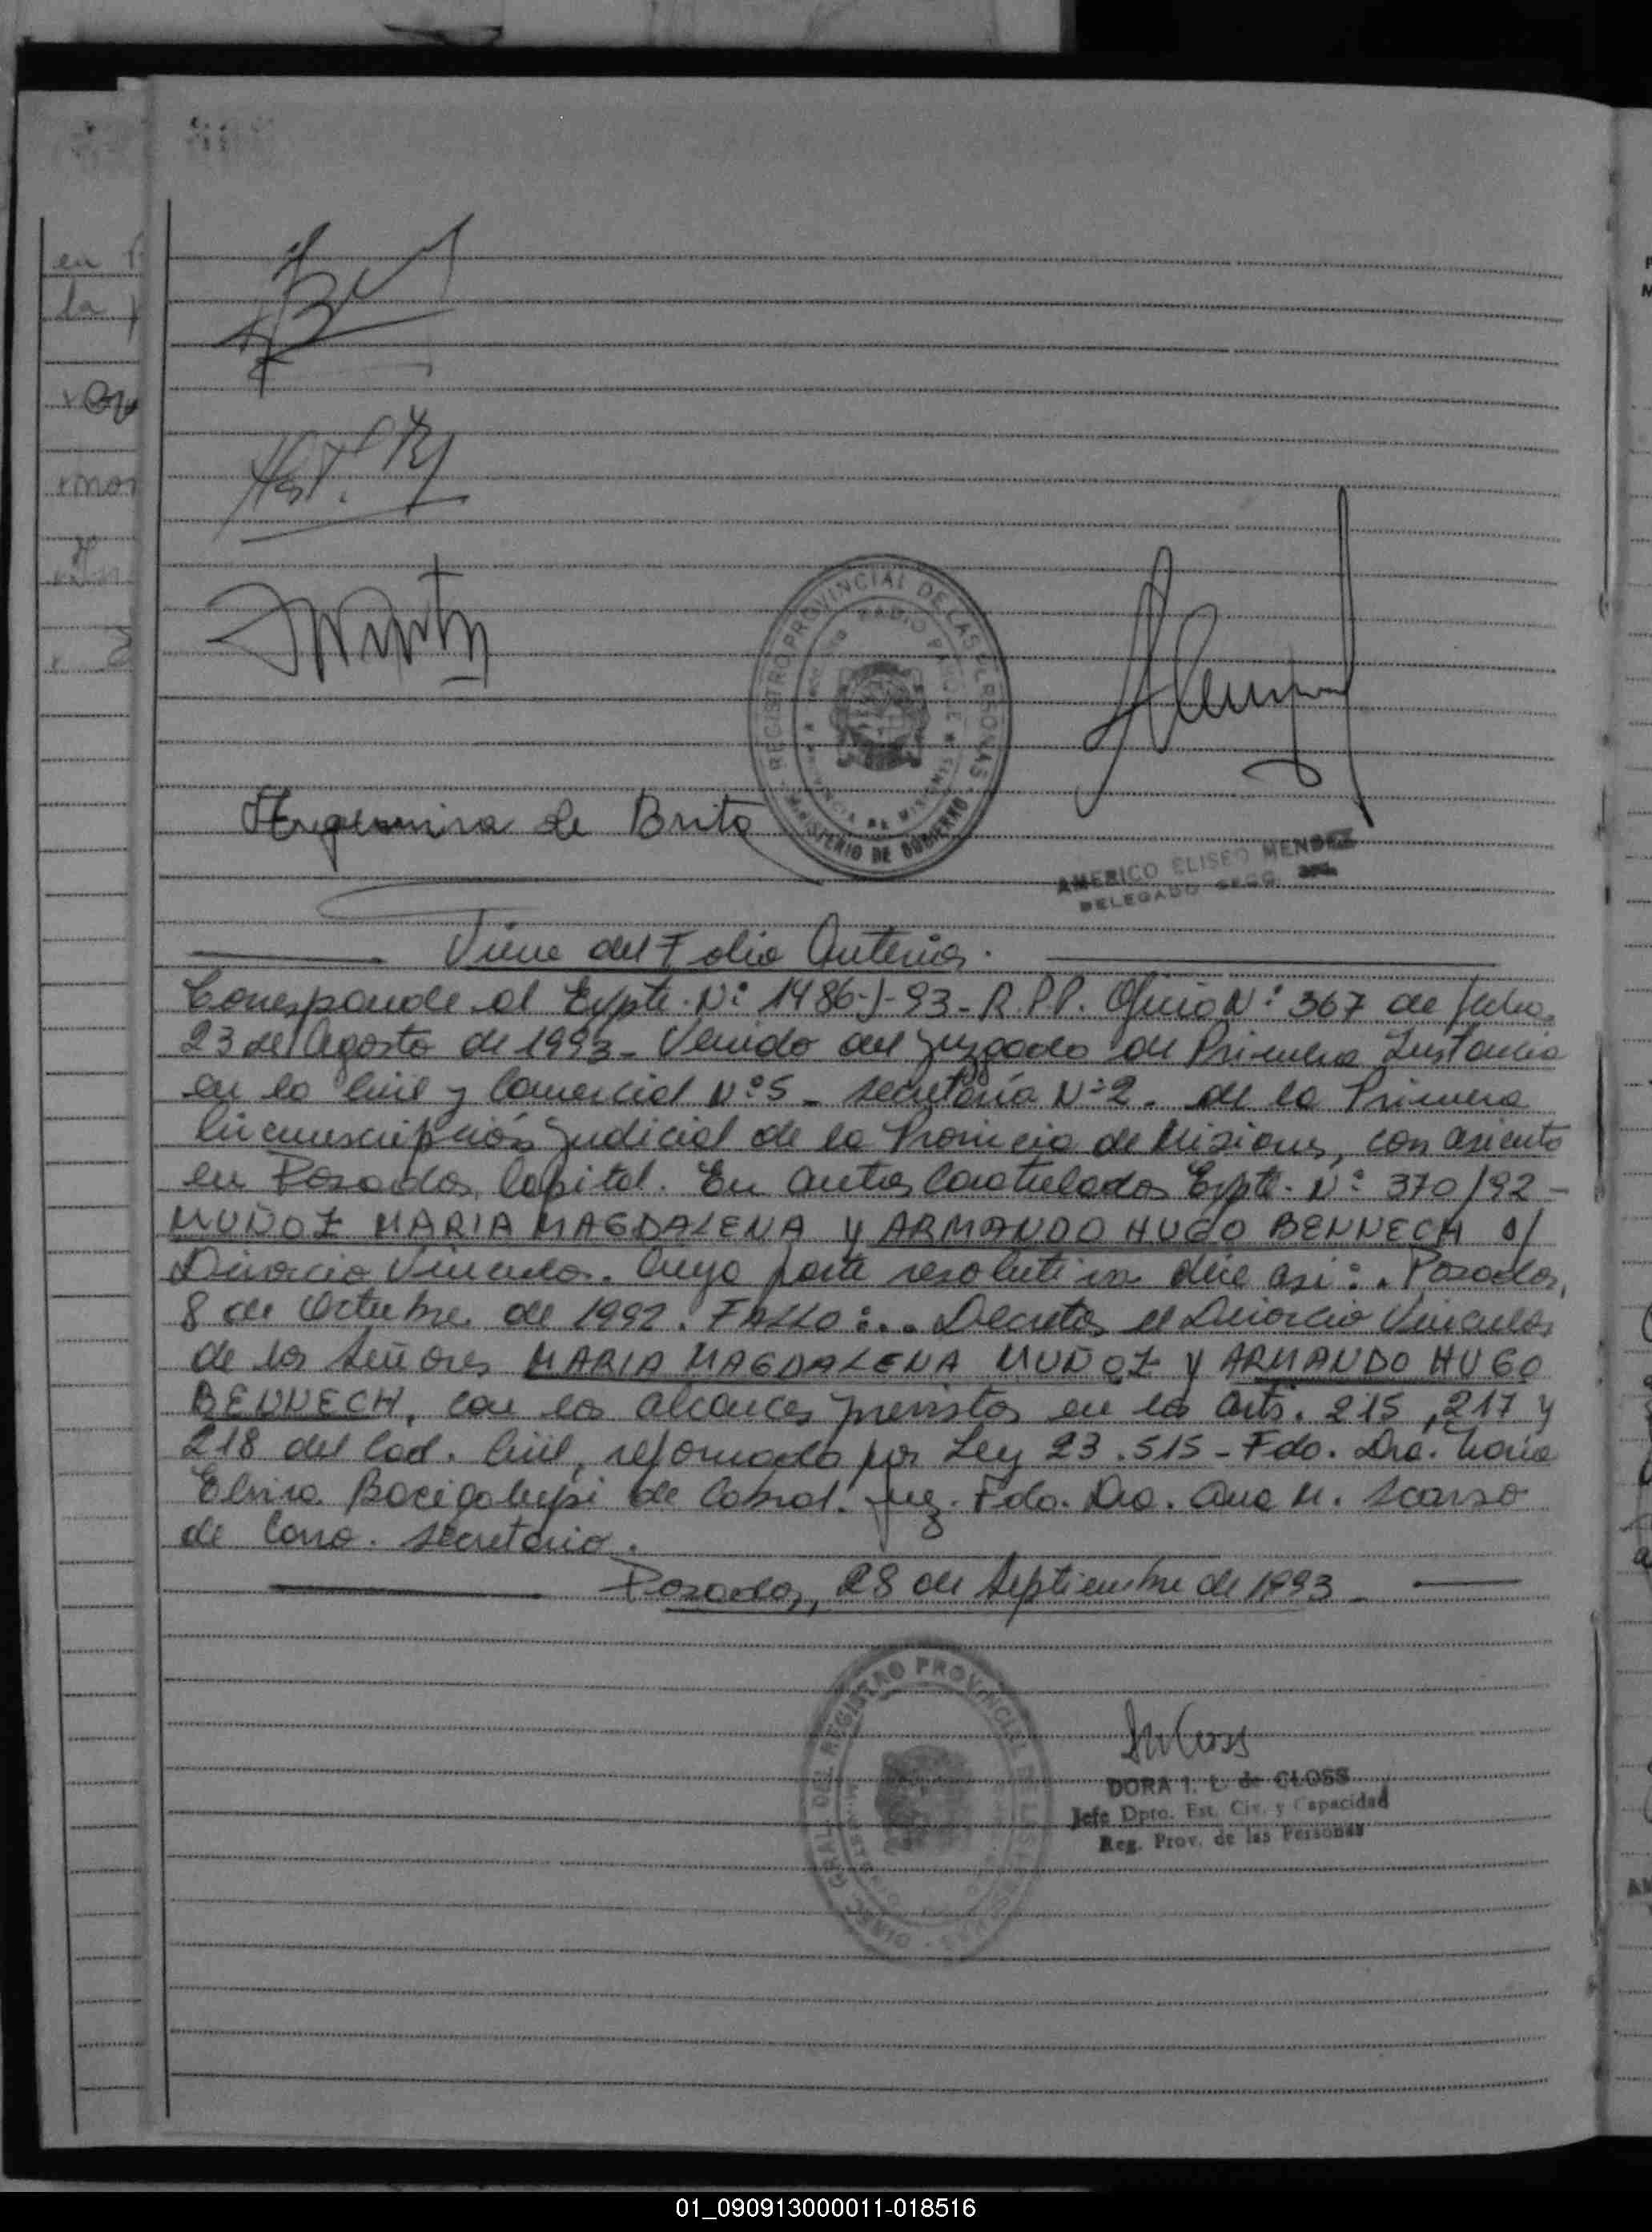 Argemira de Brito
REGISTRO PROVINCIAL DE LAS PERSONAS
MINISTERIO DE GOBIERNO
AMERICO ELISEO MENDEZ
DELEGADO
Viene del Folio Anterior.
Corresponde al Expte. Nº 1486-J-93-R.P.P. Oficio Nº 367 de fecha
23 de Agosto de 1993- Venido del Juzgado de Primera Instancia
en lo Civil y Comercial Nº 5- Secretaría Nº 2. de la Primera
Circunscripción Judicial de la Provincia de Misiones, con asiento
en Posadas, Capital. En autos Caratulados Expte. Nº 370/92-
MUÑOZ MARIA MAGDALENA y ARMANDO HUGO BENNECH s/
Divorcio Vincular. Cuya parte resolutiva dice así:. Posadas,
8 de Octubre de 1992. FALLO:.. Decretar el Divorcio Vincular
de los Señores MARIA MAGDALENA MUÑOZ y ARMANDO HUGO
BENNECH, con los alcances previstos en los arts. 215, 217 y
218 del Cod. Civil, reformado por Ley 23.515- Fdo. Dra. María
Elvira Bacigalupi de Cabral. Juez. Fdo. Dra. Ana M. Scarso
de . Secretaria.
Posadas, 28 de Septiembre de 1993-
DEL REGISTRO PROVINCIAL DE LAS PERSONAS
DORA I. L. de CLOSS
Jefe Dpto. Est. Civ. y Capacidad
Reg. Prov. de las Personas
01_090913000011-018516